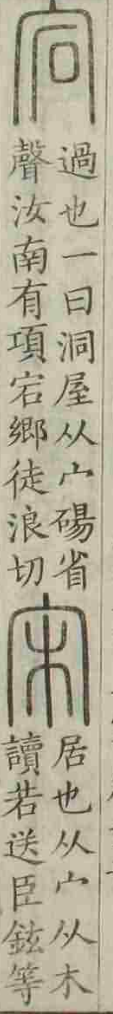 宕
過也一曰洞屋从宀碭省
聲汝南有項宕鄉徒浪切
宋
居也从宀从木
讀若送臣鉉等